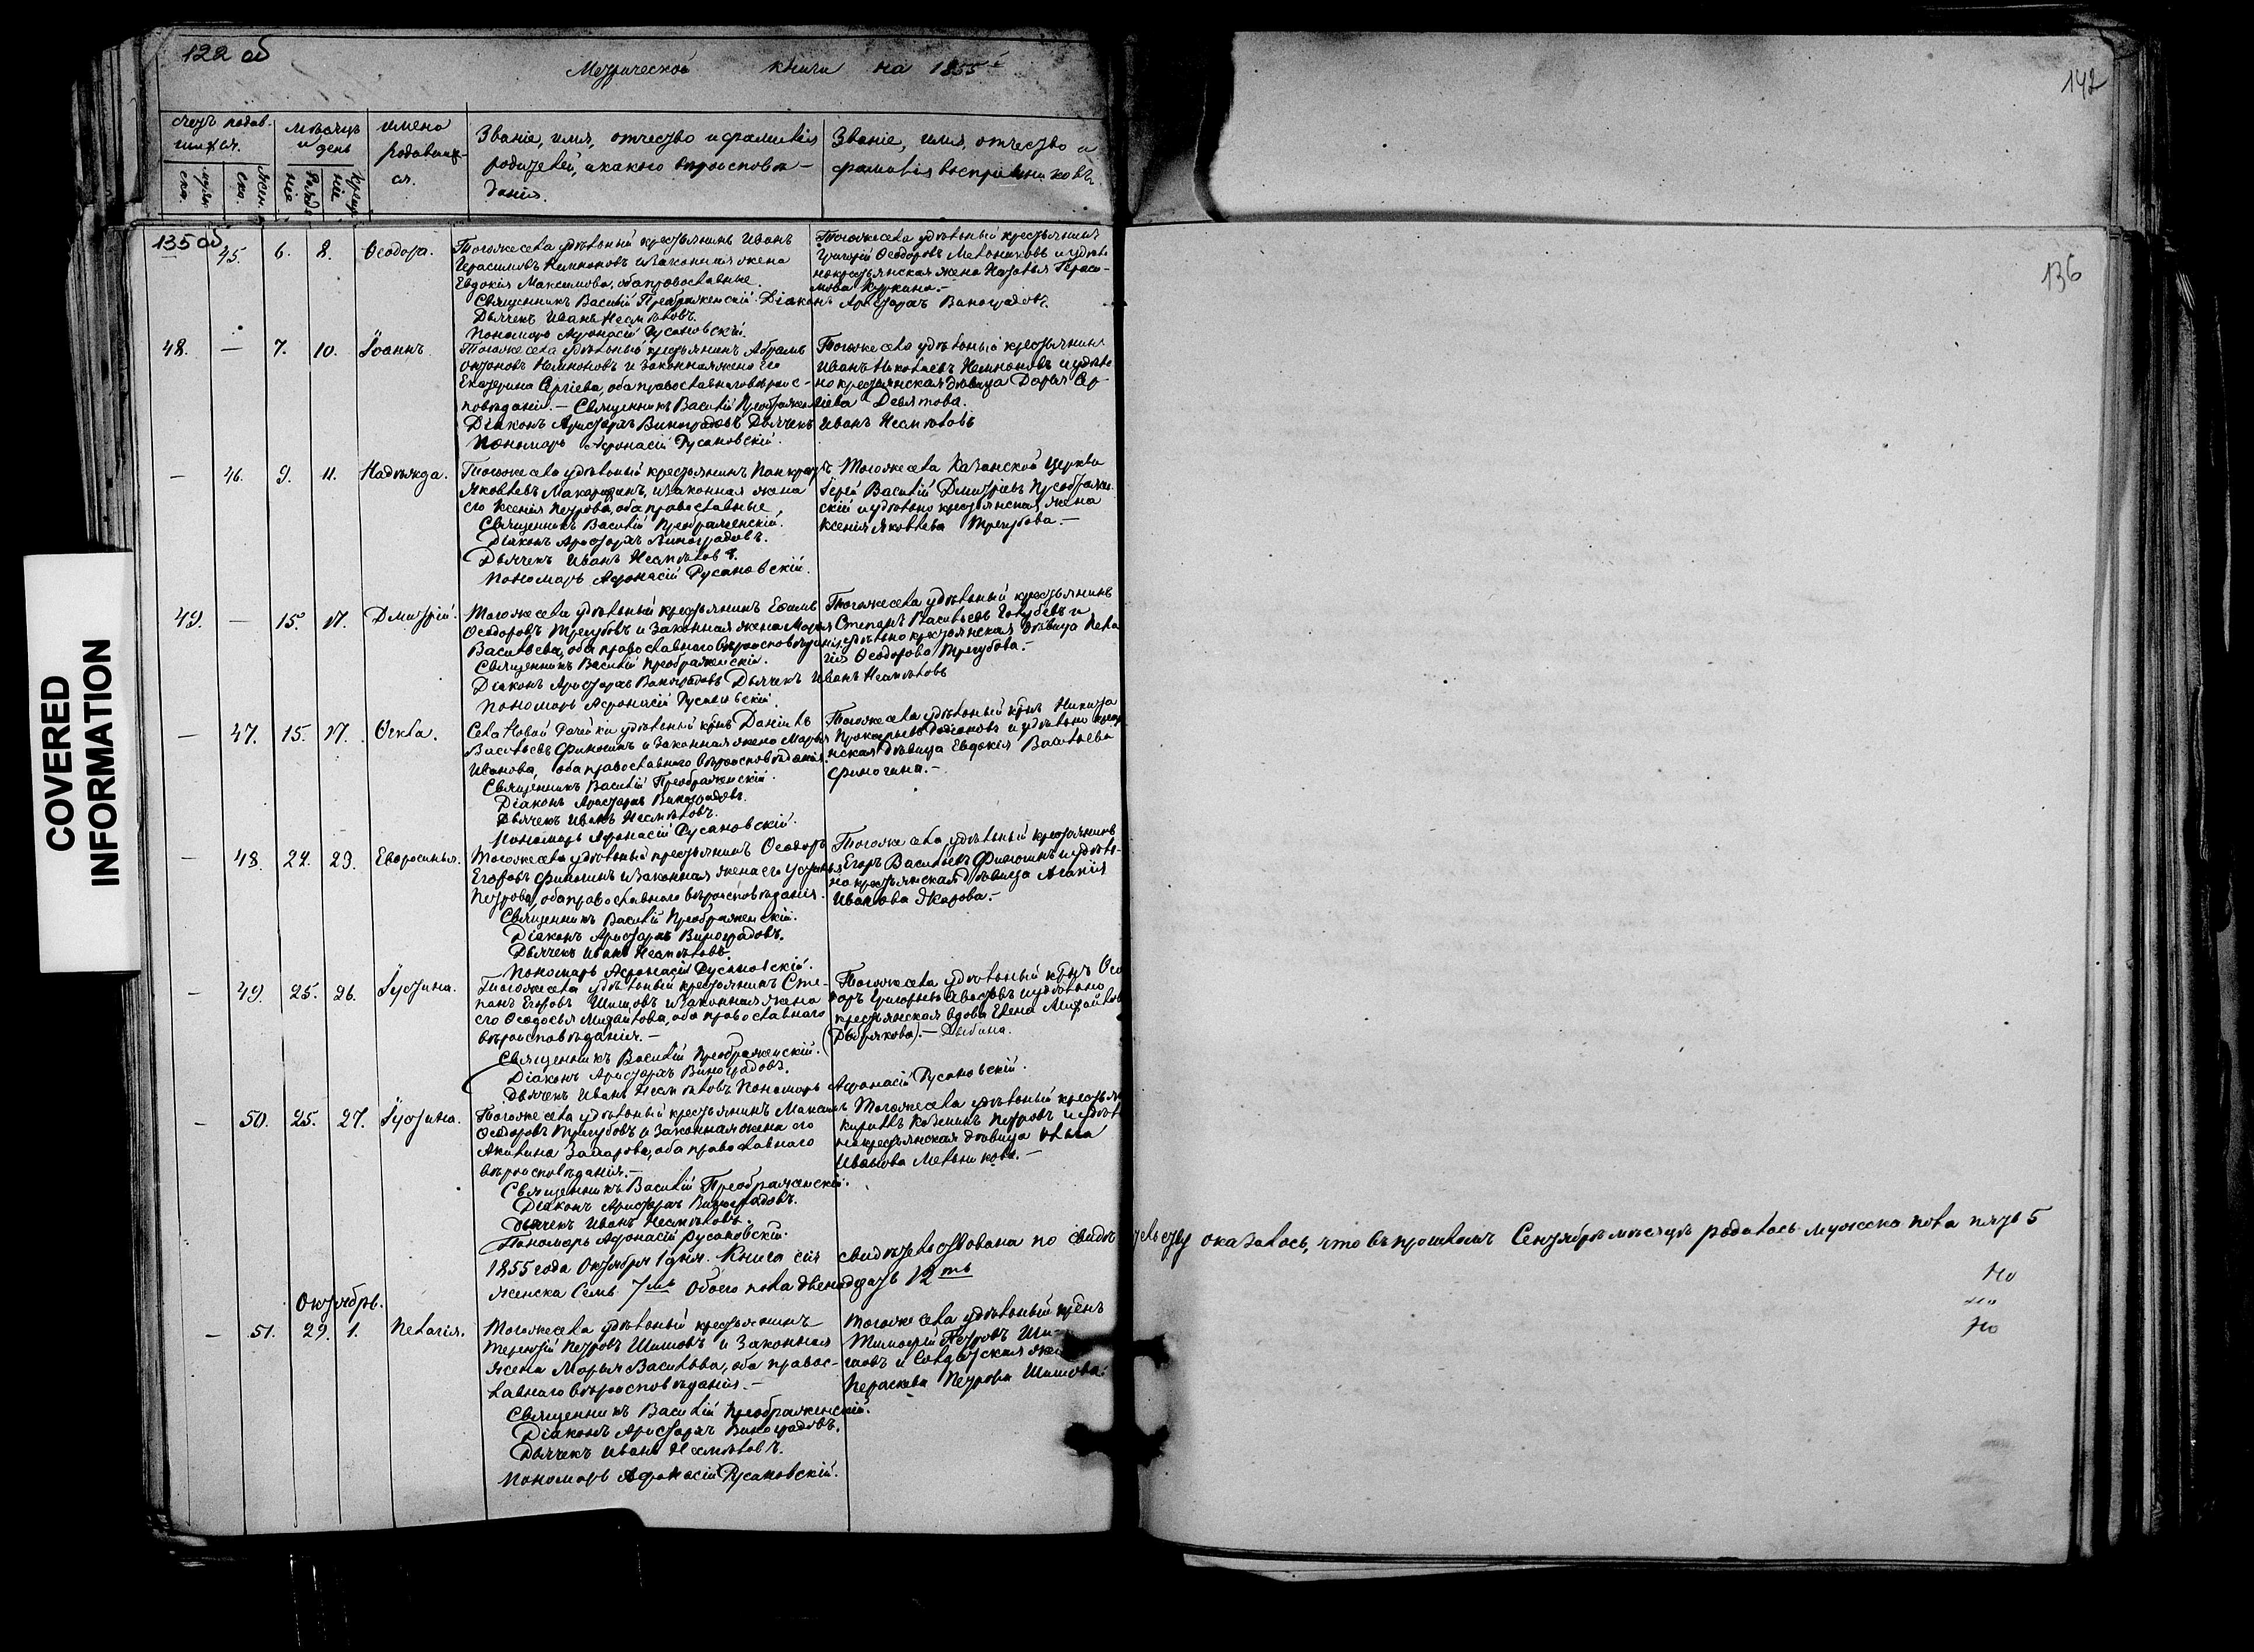 122 об
Метрической книги на 1855
142
счетъ родив-
шихся.
мужеска.
женска.
мѣсяцъ
и день
Рожденіе
Крещеніе
имена
родивших-
ся.
Званіе, имя, отчество и фамилія
родителей, и какого вѣроисповѣ-
данія.
Званіе, имя, отчество и
фамилія воспріемниковъ.
135 об
136
45. 6. 8. Ѳеодора.
Тогоже села удѣльный крестьянинъ Иванъ
Герасимовъ и законная жена
Евдокія Максимова, оба православные.
Священникъ Василій Преображенскій. Діаконъ Аристархъ Виноградовъ.
Дьячекъ Иванъ Несмѣловъ.
Пономарь Афонасій Русановскій.
Тогоже села удѣльный крестьянинъ
Григорій Ѳеодоровъ Мельниковъ и удѣль-
нокрестьянская жена Наталья Гераси-
мова Куркина.-
48. — 7. 10. Іоаннъ
Тогоже села удѣльный крестьянинъ Абрамъ
Нелионовъ и законная жена его
Екатерина Сергіева, оба православнаго вѣроис-
повѣданія. — Священникъ Василій Преображен
Діаконъ Аристархъ Виноградовъ Дьячекъ Иванъ Несмѣловъ
Пономарь Афонасій Русановскій.
Тогоже села удѣльный крестьянинъ
Иванъ Николаевъ и удѣль
но крестьянская дѣвица Дарья Сер-
гіева Девятова.
— 46. 9. 11. Надѣжда.
Тогоже села удѣльный крестьянинъ Панкратъ
Яковлевъ Макаридинъ, и законная жена
его Ксенія Петрова, оба православные,
Священникъ Василій Преображенскій.
Діаконъ Аристархъ Виноградовъ.
Дьячекъ Иванъ Несмѣловъ.
Пономарь Афонасій Русановскій.
Тогоже села Казанской Церкви
Іерей Василій Дмитріевъ Преображен
скій и удѣльно крестьянская жена
Ксенія Яковлева Трегубова.—
49. — 15. 17. Дмитрій.
Тогоже села удѣльный крестьянинъ Ефимъ
Ѳеодоровъ Трегубовъ и законная жена Марья
Васильева, оба православнаго вѣроисповѣданія.
Священникъ Василій Преображенскій.
Діаконъ Аристархъ Виноградовъ Дьячекъ Иванъ Несмѣловъ
Пономарь Афонасій Русановскій.
Тогоже села удѣльный крестьянинъ
Степанъ Васильевъ Голубевъ и
удѣльно крестьянская дѣвица Пела
гія Ѳеодорова Трегубова.-
— 47. 15. 17. Ѳекла.
Села Новой Рачейки удѣльный крнъ Даніилъ
Васильевъ Финогинъ и законная жена Марья
Иванова, оба православнаго вѣроисповѣданія.
Священникъ Василій Преображенскій.
Діаконъ Аристархъ Виноградовъ.
Дьячекъ Иванъ Несмѣловъ.
Пономарь Афонасій Русановскій.
Тогоже села удѣльный крнъ Никита
Прокопьевъ Родіоновъ и удѣльно крестья
нская дѣвица Евдокія Васильева
Финогина.-
— 48. 22. 23. Евфросинья.
Тогоже села удѣльный крестьянинъ Ѳеодоръ
Егоровъ Финогинъ и законная жена его Устинья
Петрова, оба православнаго вѣроисповѣданія.
Священникъ Василій Преображенскій.
Діаконъ Аристархъ Виноградовъ.
Дьячекъ Иванъ Несмѣловъ.
Пономарь Афонасій Русановскій.
Тогоже села удѣльный крестьянинъ
Егоръ Васильевъ Финогинъ и удѣль-
но крестьянская дѣвица Агапія
Иванова Якарова.-
— 49. 25. 26. Іустина.
Тогоже села удѣльный крестьянинъ Сте-
панъ Егоровъ Шишовъ и законная жена
его Ѳеодосья Михайлова, оба православнаго
вѣроисповѣданія.—
Священникъ Василій Преображенскій.
Діаконъ Аристархъ Виноградовъ.
Дьячекъ Иванъ Несмѣловъ Пономарь Афонасій Русановскій.
Тогоже села удѣльный крнъ Ѳео
доръ Григорьевъ и удѣльно
крестьянская вдова Елена Михайлов
(Рыбрякова).— Рыбина.
— 50. 25. 27. Іустина.
Тогоже села удѣльный крестьянинъ Максимъ
Ѳеодоровъ Трегубовъ и законная жена его
Акилина Захарова, оба православнаго
вѣроисповѣданія.—
Священникъ Василій Преображенскій.
Діаконъ Аристархъ Виноградовъ.
Дьячекъ Иванъ Несмѣловъ.
Пономарь Афонасій Русановскій.
Тогоже села удѣльный крестьян
Кирилъ Козминъ Петровъ и удѣль
но крестьянская дѣвица Ѳекла
Иванова Мельникова.—
1855 года Октября 1 дня. Книга сія свидѣтельствована по свидѣтельству оказалось, что въ прошломъ Сентябрѣ мѣсяцѣ родилось мужеска пола пять 5
женска Семь 7мь Обоего пола двенадцать 12ть
но
но
но
Октябрь.
— 51. 29. 1. Пелагія.
Тогоже села удѣльный крестьянинъ
Терентій Петровъ Шишовъ и законная
жена Марья Васильева, оба правос-
лавнаго вѣроисповѣданія.—
Священникъ Василій Преображенскій.
Діаконъ Аристархъ Виноградовъ.
Дьячекъ Иванъ Несмѣловъ.
Пономарь Афонасій Русановскій.
Тогоже села удѣльный крнъ
Тимофей Петровъ Ши-
шовъ и Солдатская жен
Пераскева Петрова Шишова.
COVERED
INFORMATION